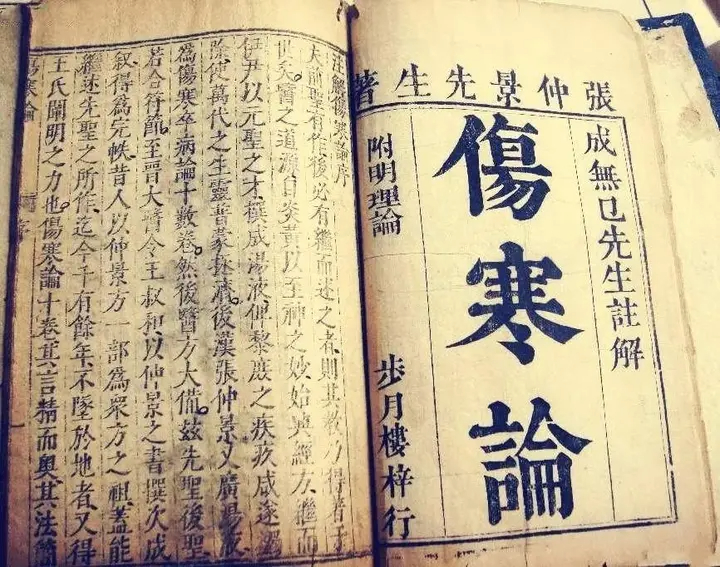 張仲景先生著
成無已先生註解
傷寒論
附明理論
步月樓梓行
注解傷寒論序
夫前聖有作後必有繼而述之者則其教乃得著于
世矣醫之道源自炎黃以至神之妙始興經方繼而
伊尹以元聖之才撰成湯液俾黎庶之疾疢咸遂蠲
除使萬代之生靈普蒙拯濟後漢張仲景又廣湯液
為傷寒卒病論十數卷然後醫方大備茲先聖後聖
若合符節至晉大醫令王叔和以仲景之書撰次成
敘得為完帙昔人以仲景方一部為眾方之祖蓋能
繼述先聖之所作迄今千有餘年不墜於地者又得
王氏闡明之力也傷寒論十卷其言精而奧其法簡
傷寒論